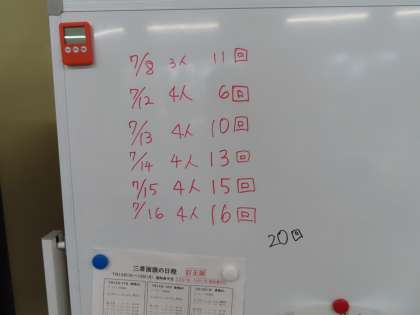 7/8 3人 11回
7/12 4人 6回
7/13 4人 10回
7/14 4人 13回
7/15 4人 15回
7/16 4人 16回
20回
三者面談の日程 訂正版